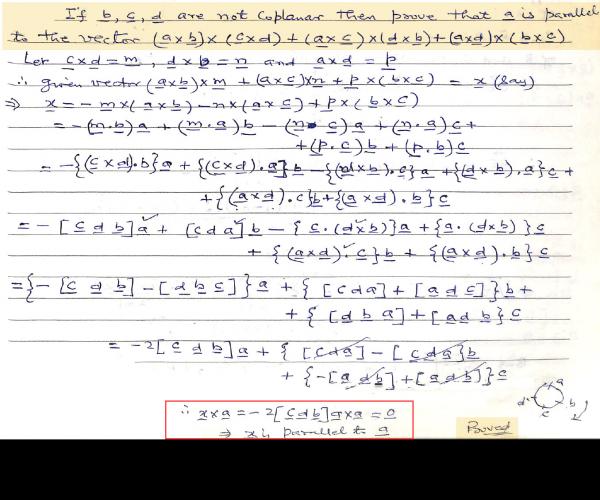 If b, c, d are not coplanar then prove that a is parallel
to the vector (a×b)×(c×d)+(a×c)×(d×b)+(a×d)×(b×c)
Let c×d=m, d×b=n and a×d=p
∴ given vector (a×b)×m + (a×c)×n + p×(b×c) = x (say)
⇒ x = -m×(a×b)-n×(a×c)+p×(b×c)
= -(m.b)a + (m.a)b - (n c)a + (n.a)c +
+(p.c)b + (p.b)c
= -{(c×d).b}a + {(c×d).a}b - {(d×b).c}a + {(d×b).a}c +
+ {(a×d).c}b + {(a×d).b}c
= -[c d b]a + [c d a]b - {c.(d×b)}a + {a.(d×b)}c
+ {(a×d).c}b + {(a×d).b}c
= {-[c d b]-[d b c]}a + {[c d a]+[a d c]}b +
+ {[d b a]+[a d b]}c
= -2[c d b]a + {[c d a] - [c d a]}b
+ {-[a d b]+[a d b]}c
a
d b
c
∴ x×a = -2[c d b]a×a = 0
⇒ x is parallel to a
Proved